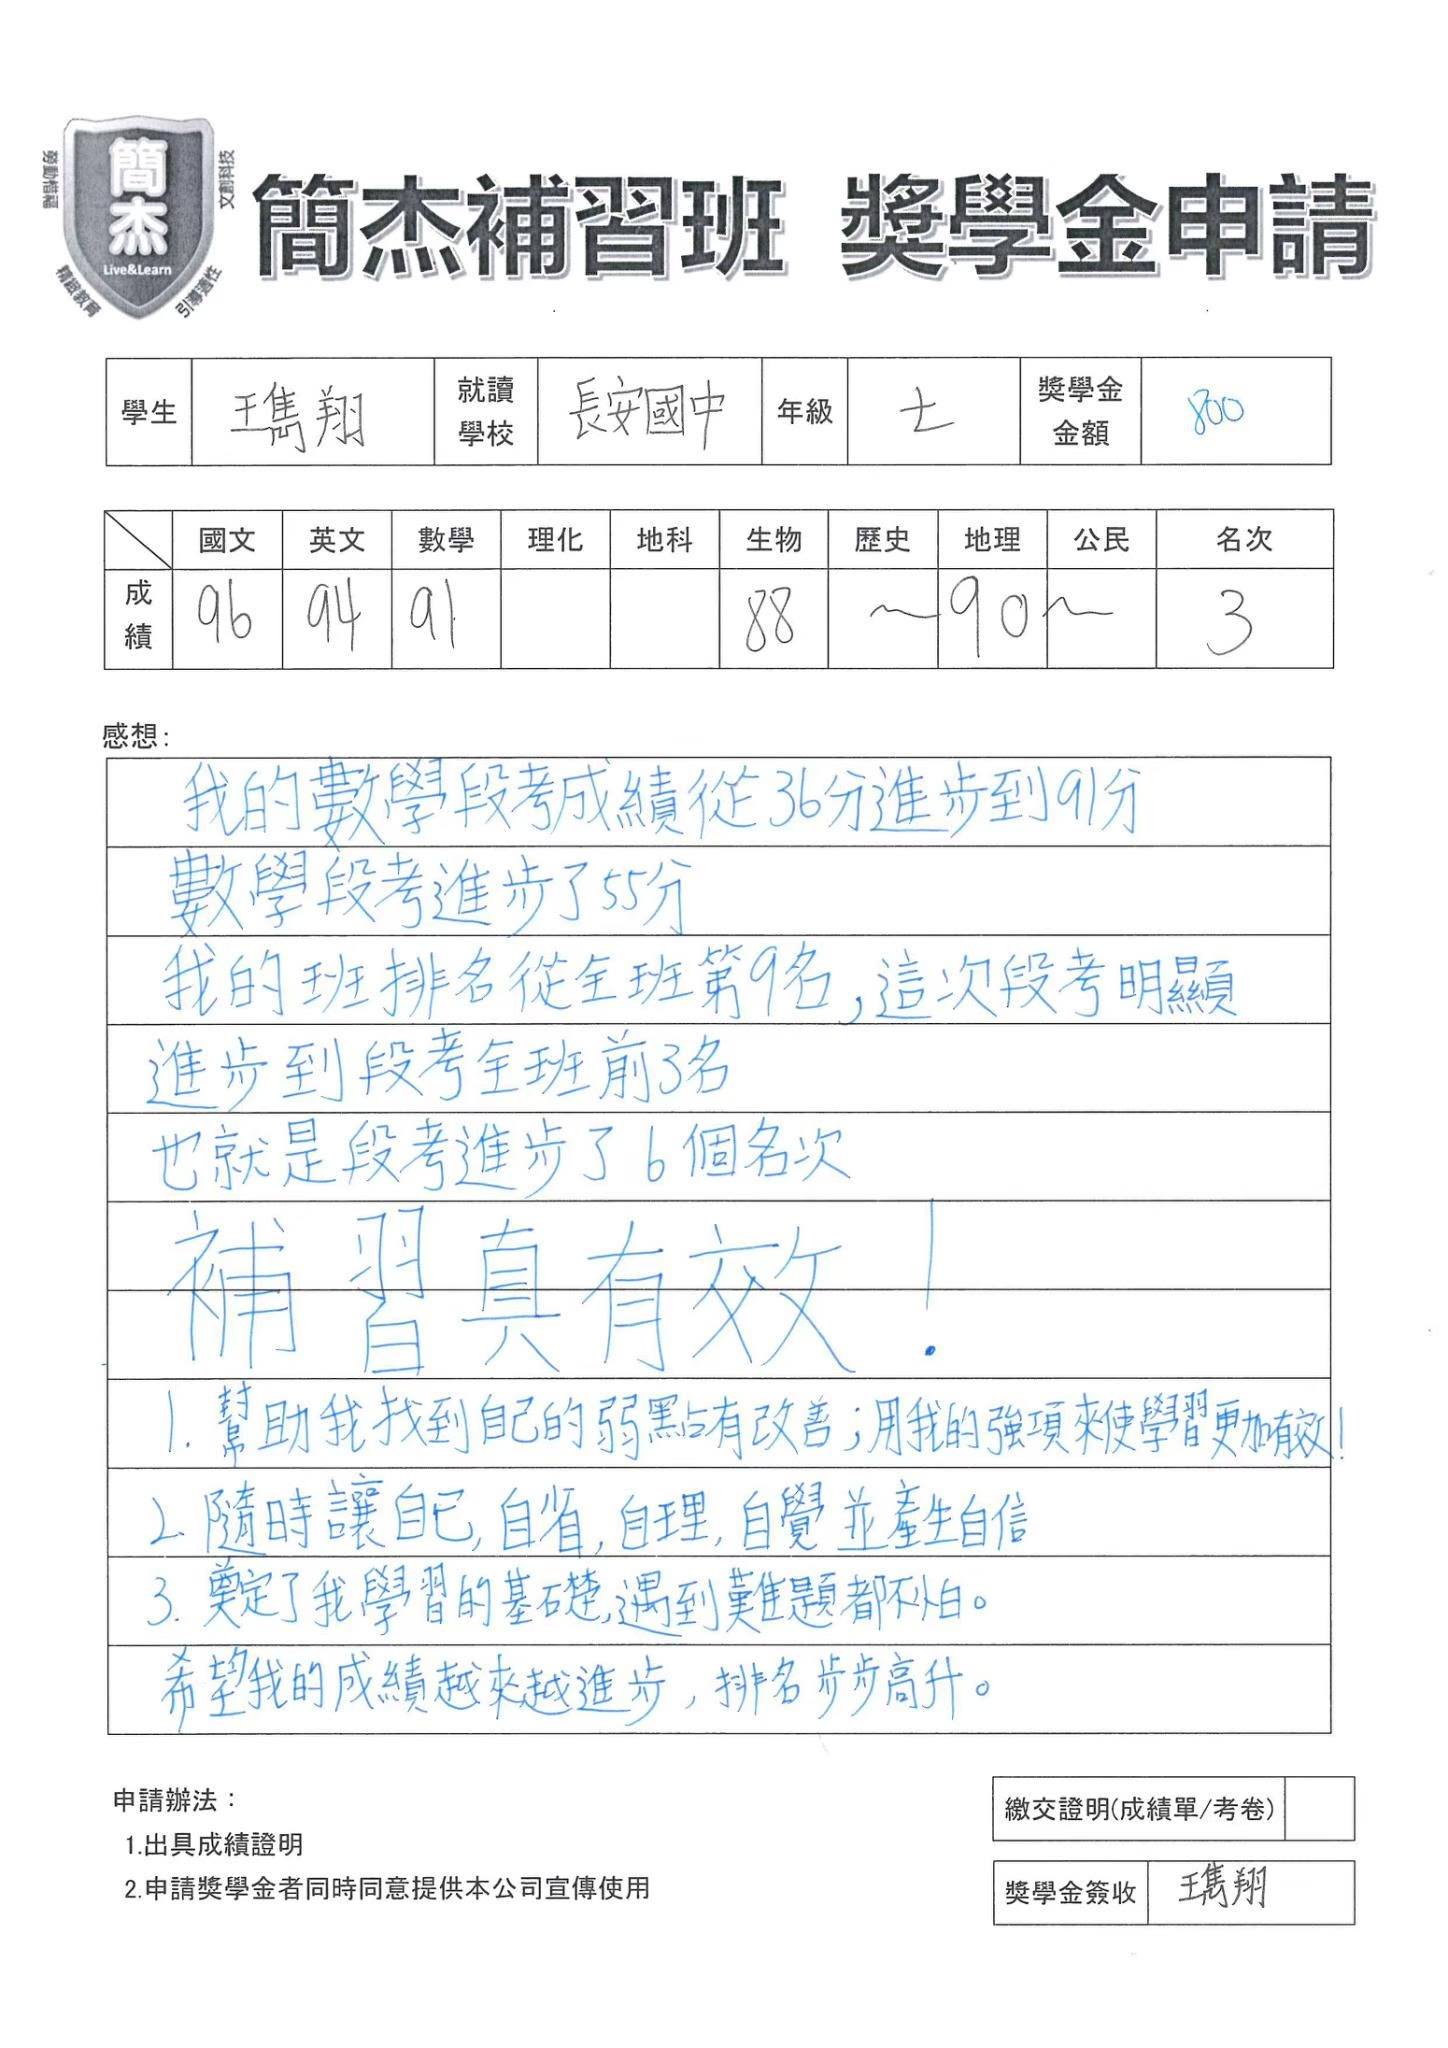 簡杰
Live&Learn
勞動楷模
文創科技
精緻教育
引導適性
簡杰補習班 獎學金申請
學生 王雋翔 就讀學校 長安國中 年級 七 獎學金金額 800
國文 英文 數學 理化 地科 生物 歷史 地理 公民 名次
成績 96 94 91 88 ~90~ 3
感想：
我的數學段考成績從36分進步到91分
數學段考進步了55分
我的班排名從全班第9名,這次段考明顯
進步到段考全班前3名
也就是段考進步了6個名次
補習真有效!
1. 幫助我找到自己的弱點有改善;用我的強項來使學習更加有效!
2. 隨時讓自己,自省,自理,自覺並產生自信
3. 奠定了我學習的基礎,遇到難題都不怕。
希望我的成績越來越進步,排名步步高升。
申請辦法：
1.出具成績證明
2.申請獎學金者同時同意提供本公司宣傳使用
繳交證明(成績單/考卷)
獎學金簽收 王雋翔